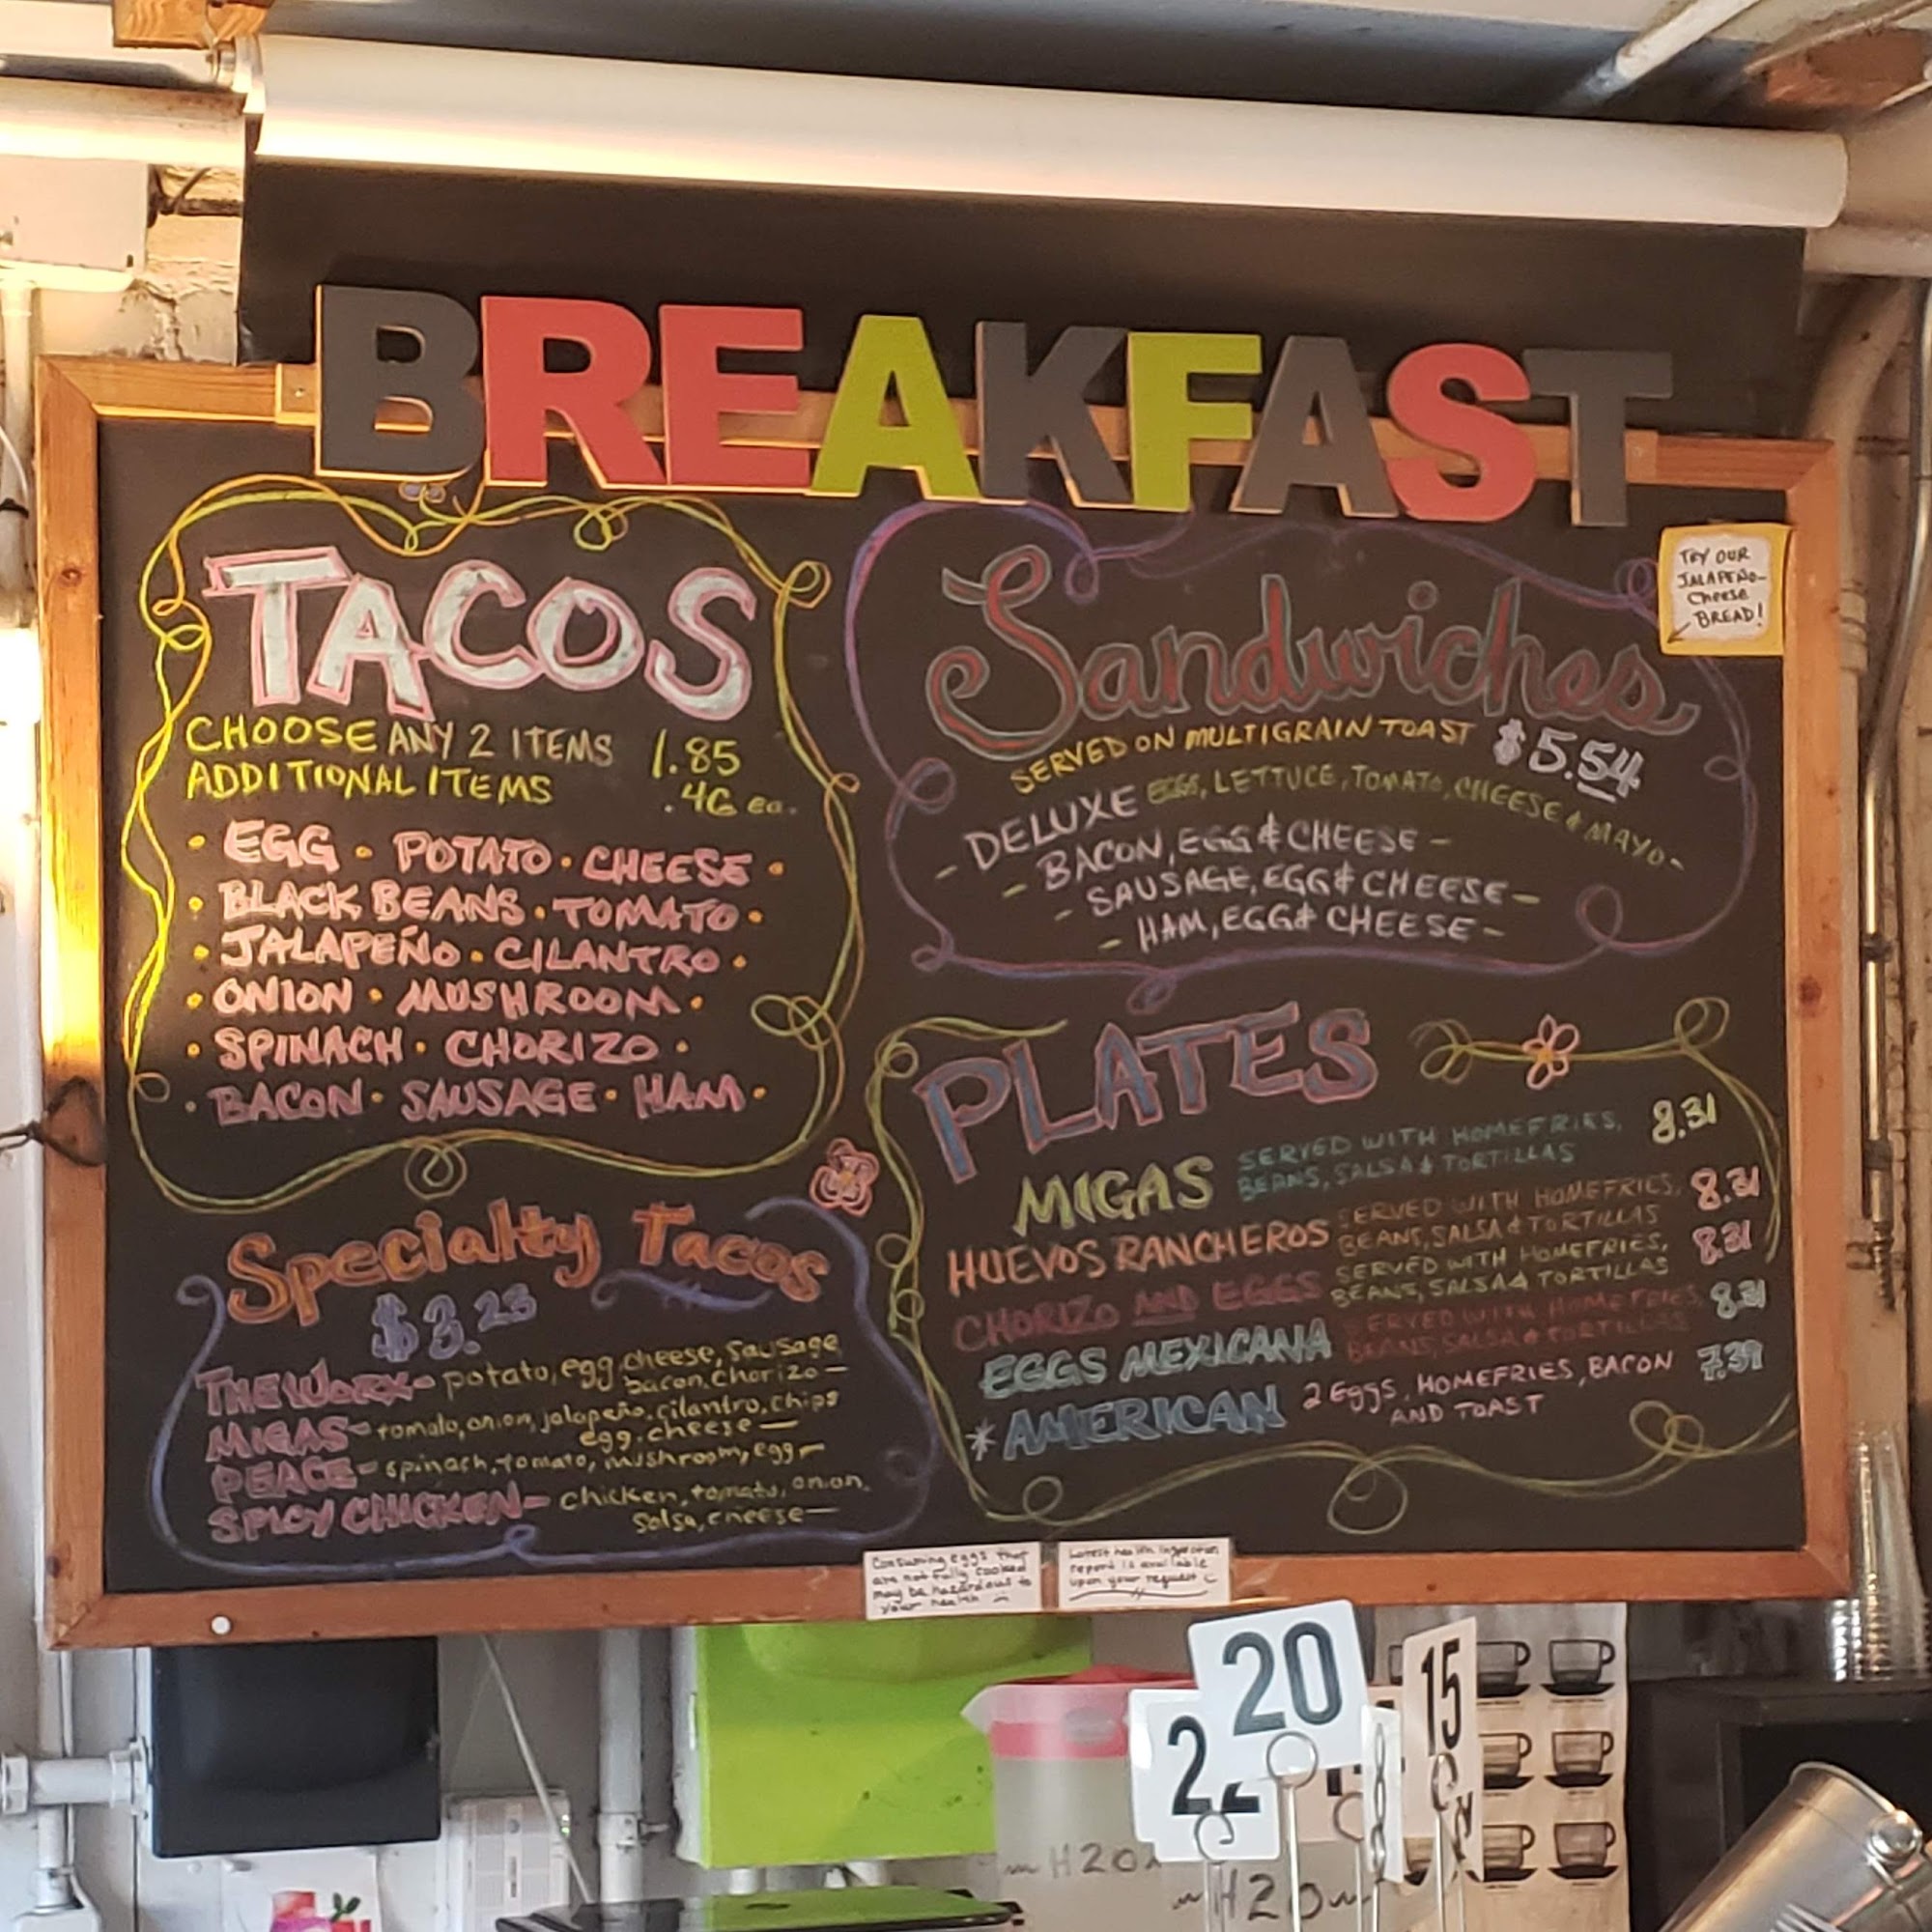 BREAKFAST
TACOS
CHOOSE ANY 2 ITEMS 1.85
ADDITIONAL ITEMS .46 ea.
• EGG • POTATO • CHEESE •
• BLACK BEANS • TOMATO •
• JALAPEÑO • CILANTRO •
• ONION • MUSHROOM •
• SPINACH • CHORIZO •
• BACON • SAUSAGE • HAM •
Specialty Tacos
$3.23
THE WORX- potato, egg, cheese, sausage
bacon, chorizo—
MIGAS- tomato, onion, jalapeño, cilantro, chips
egg, cheese—
PEACE- spinach, tomato, mushroom, egg—
SPICY CHICKEN- chicken, tomato, onion,
salsa, cheese—
TRY OUR
JALAPEÑO-
Cheese
BREAD!
Sandwiches
SERVED ON MULTIGRAIN TOAST $5.54
- DELUXE EGGS, LETTUCE, TOMATO, CHEESE & MAYO -
- BACON, EGG & CHEESE -
- SAUSAGE, EGG & CHEESE -
- HAM, EGG & CHEESE -
PLATES
MIGAS SERVED WITH HOMEFRIES, 8.31
BEANS, SALSA & TORTILLAS
HUEVOS RANCHEROS SERVED WITH HOMEFRIES, 8.31
BEANS, SALSA & TORTILLAS
CHORIZO AND EGGS SERVED WITH HOMEFRIES, 8.31
BEANS, SALSA & TORTILLAS
EGGS MEXICANA SERVED WITH HOMEFRIES, 8.31
BEANS, SALSA & TORTILLAS
* AMERICAN 2 Eggs, HOMEFRIES, BACON 7.39
AND TOAST
Consuming eggs that
are not fully cooked
may be hazardous to
your health
Latest health inspection
report is available
upon your request
20
22
15
H20
H20